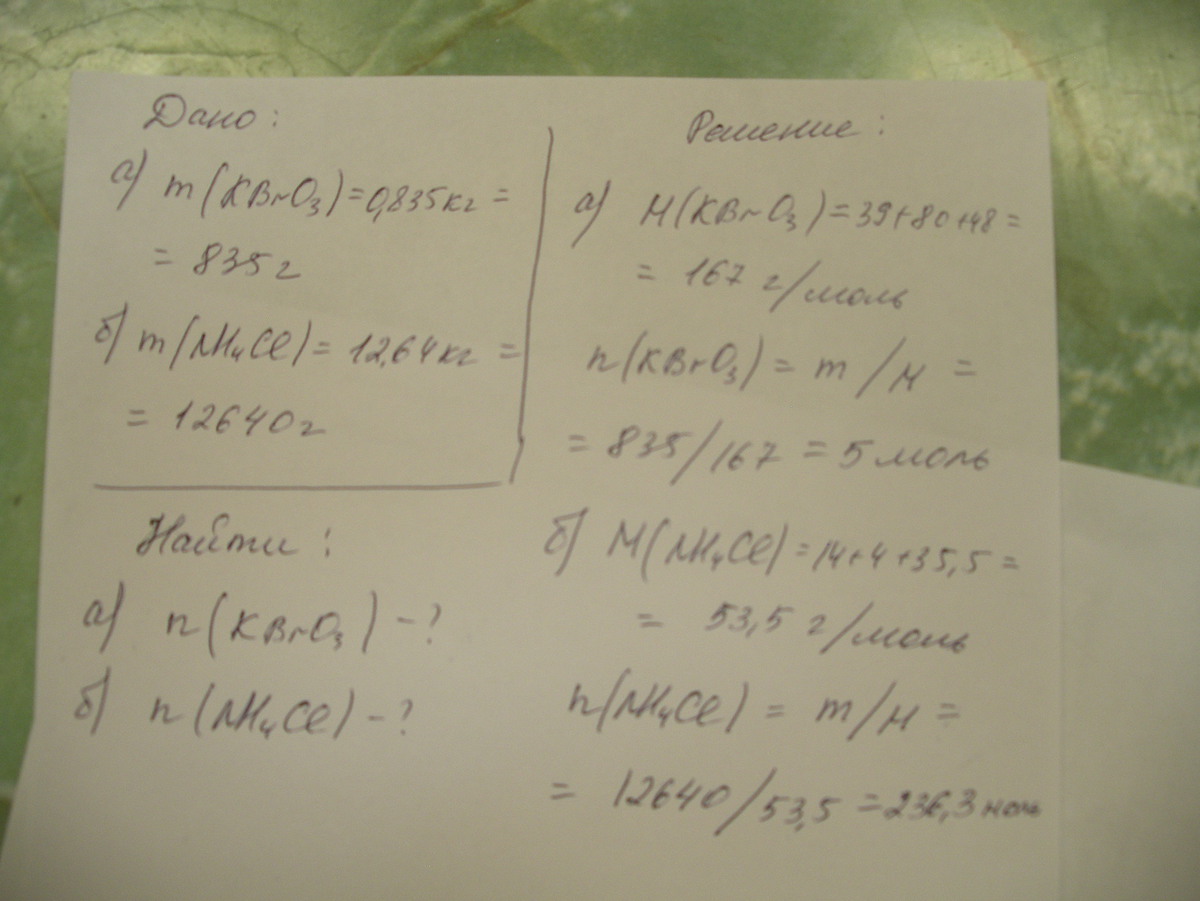 Дано:
а) m(KBrO₃)=0,835кг=
= 835г
б) m(NH₄Cl)= 12,64кг =
= 12640г
Найти:
а) n(KBrO₃) -?
б) n(NH₄Cl) -?
Решение:
а) M(KBrO₃)=39+80+48=
= 167 г/моль
n(KBrO₃) = m/M =
= 835/167 = 5 моль
б) M(NH₄Cl)=14+4+35,5=
= 53,5 г/моль
n(NH₄Cl) = m/M =
= 12640/53,5 =236,3 моль